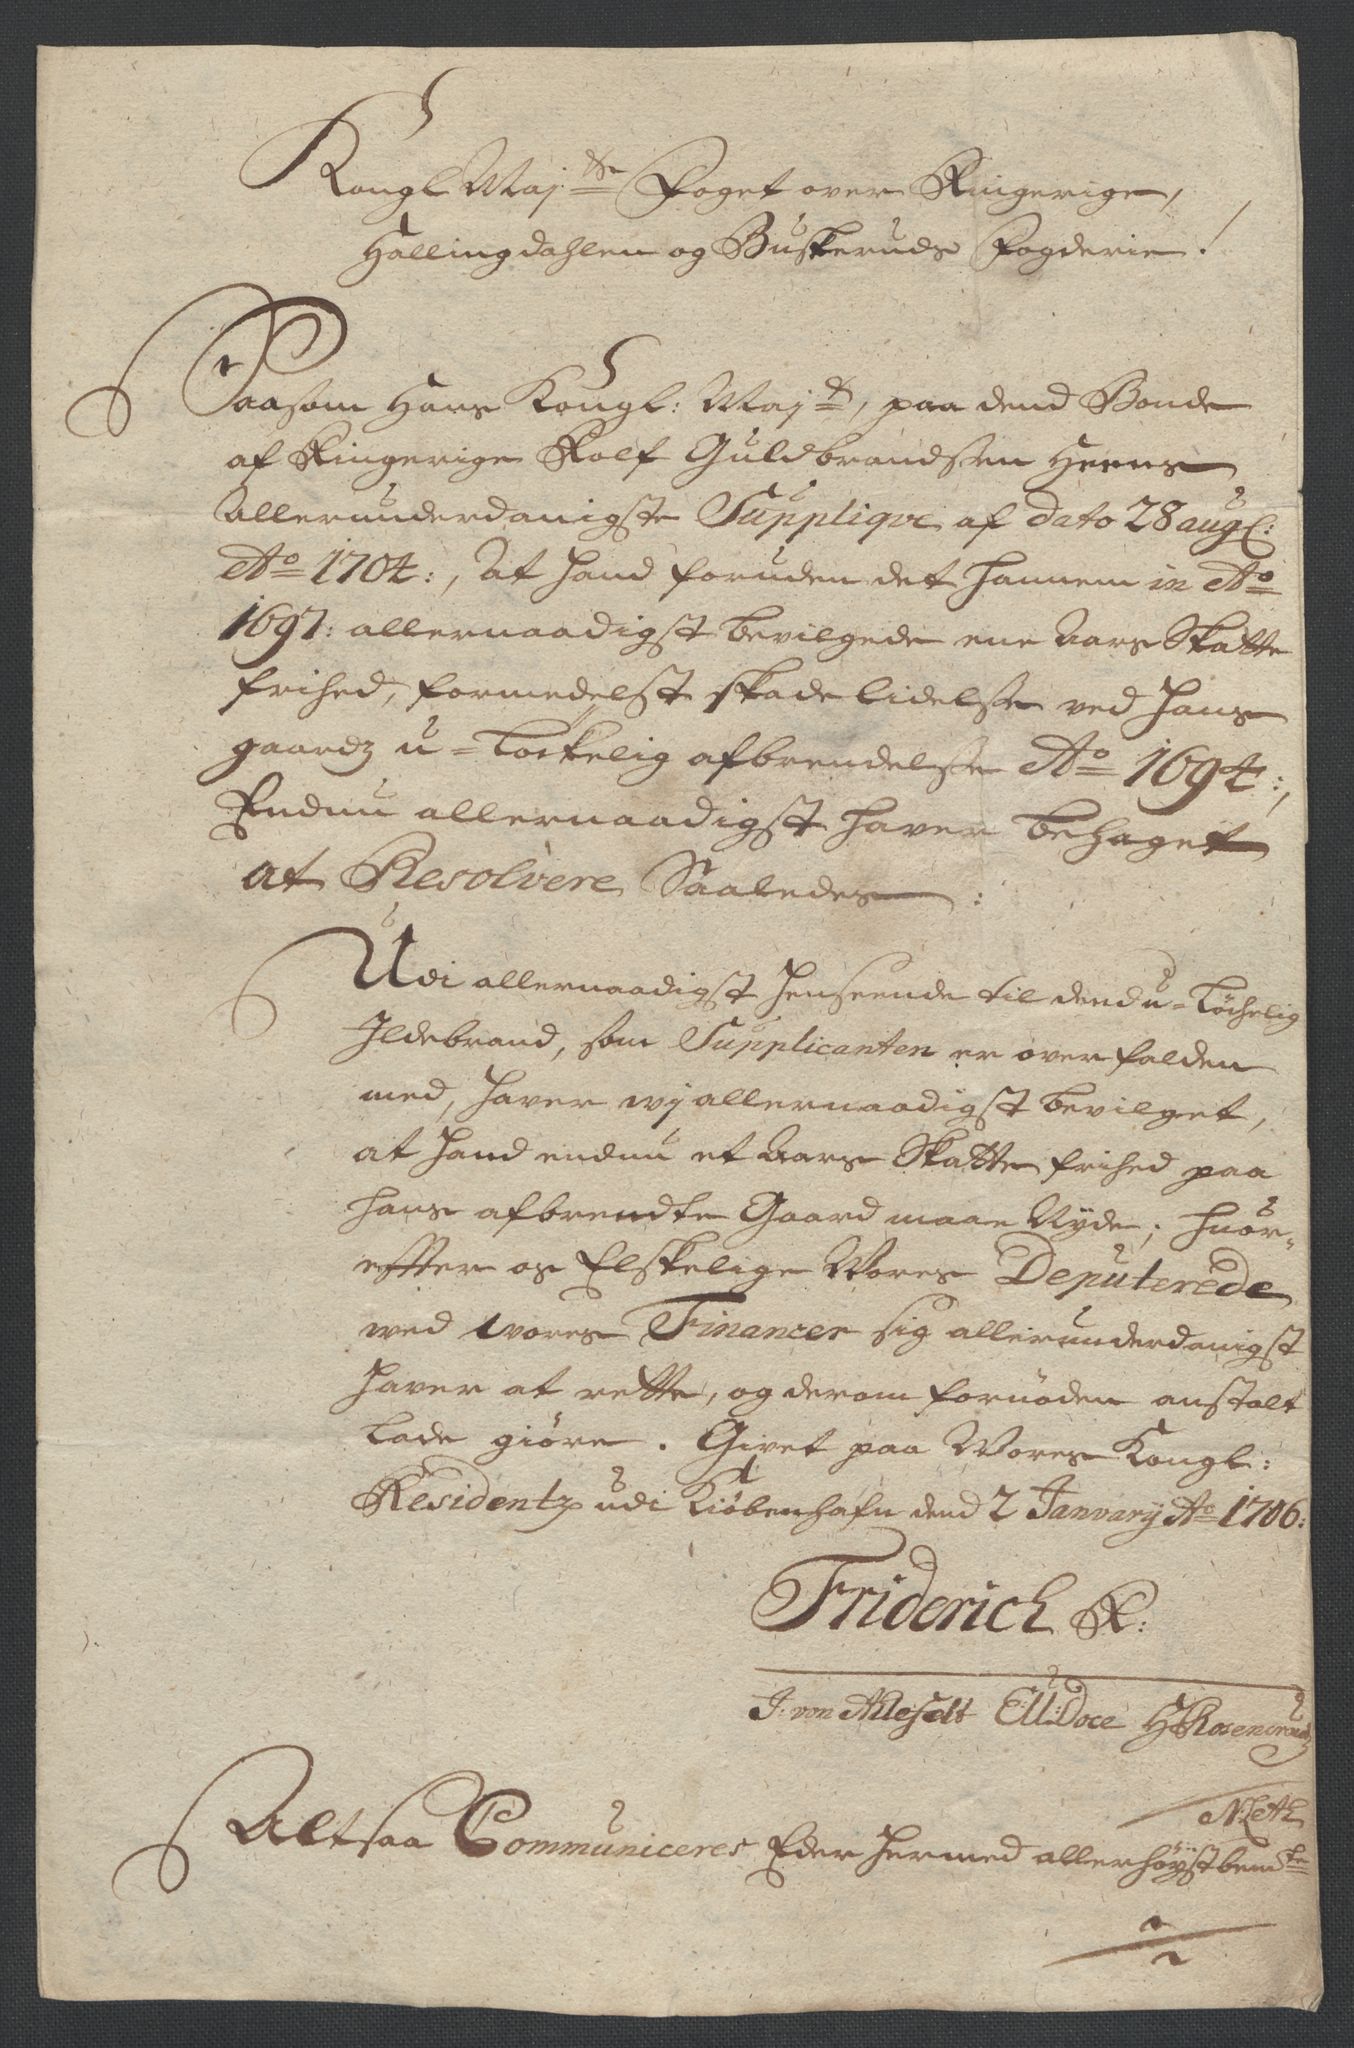 Kongl Maj:ts Foget over Ringerige,
Hallingdahlen og Buskeruds Fogderie!
Saasom Hans Kongl: Maj:t, paa dend Bonde
af Ringerige Rolf Guldbrandsen Heens
Allerunderdanigste Supplique af dato 28 aug:
Ao 1704:, At hand foruden det hannem in Ao
1697: allernaadigst bevilgede ene Aars Skatte
frihed, formedelst skade lidelse ved hans
gaardz u-lyckelig afbrendelse Ao 1694:,
Endnu allernaadigst haver behaget
at Resolvere Saaledes:
Udi allernaadigst henseende til dend u-lychelig
Ildebrand, som Supplicanten er overfalden
med, haver wj allernaadigst bevilget,
at hand endnu et Aars Skatte frihed paa
hans afbrendte Gaard maae Nyde; huor-
effter os Elskelige Vores Deputerede
ved vores Financer sig allerunderdanigst
haver at rette, og derom fornøden anstalt
lade giøre. Givet paa Vores Kongl:
Residentz udi Kiøbenhafn dend 2 January Ao 1706:
Friderich R:
J: von Ahlefelt Ell: Doce H Rosencrantz
Altsaa Communiceres Eder hermed allerhøystbemte